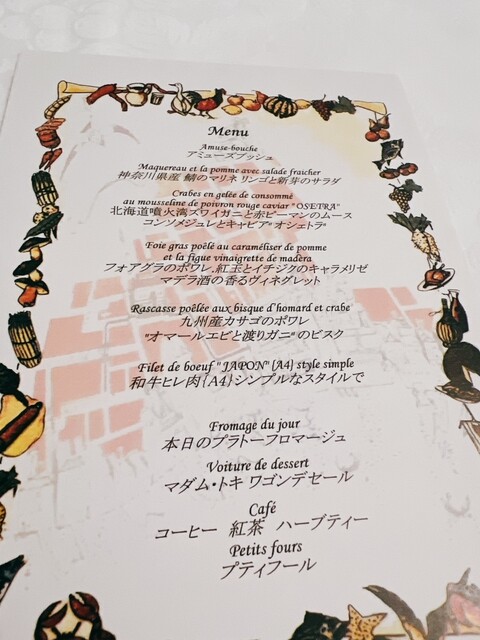 Menu
Amuse-bouche
アミューズブッシュ
Maquereau et la pomme avec salade fraicher
神奈川県産 鯖のマリネ リンゴと新芽のサラダ
Crabes en gelée de consommé
au mousseline de poivron rouge caviar " OSETRA"
北海道噴火湾ズワイガニと赤ピーマンのムース
コンソメジュレとキャビア" オシェトラ"
Foie gras poêlé au caraméliser de pomme
et la figue vinaigrette de madèra
フォアグラのポワレ.紅玉とイチジクのキャラメリゼ
マデラ酒の香るヴィネグレット
Rascasse poêlée aux bisque d'homard et crabe
九州産カサゴのポワレ
"オマールエビと渡りガニ" のビスク
Filet de boeuf " JAPON" {A4} style simple
和牛ヒレ肉{A4}シンプルなスタイルで
Fromage du jour
本日のプラトーフロマージュ
Voiture de dessert
マダム・トキ ワゴンデセール
Café
コーヒー 紅茶 ハーブティー
Petits fours
プティフール